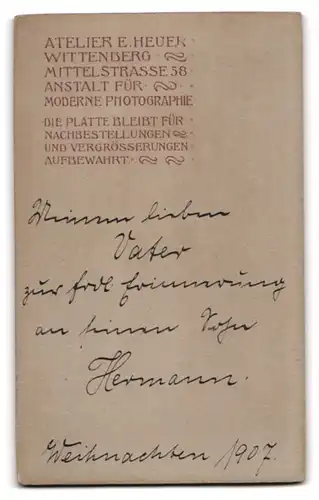 ATELIER E. HEUER
WITTENBERG
MITTELSTRASSE 58
ANSTALT FÜR
MODERNE PHOTOGRAPHIE
DIE PLATTE BLEIBT FÜR
NACHBESTELLUNGEN
UND VERGRÖSSERUNGEN
AUFBEWAHRT
Meinem lieben
Vater
zur frdl Erinnerung
an seinen Sohn
Hermann.
Weihnachten 1907.